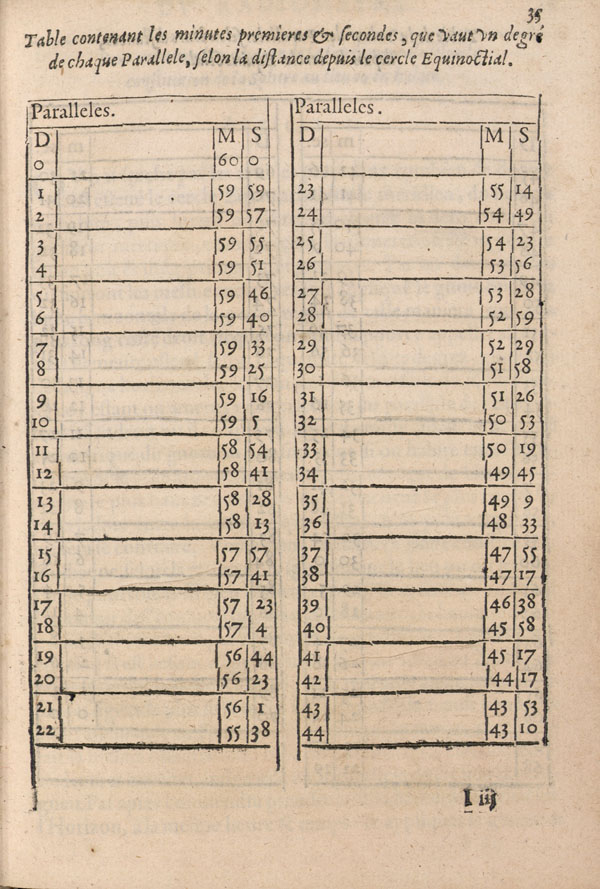 35
Table contenant les minutes premieres & ſecondes, que vaut vn degré
de chaque Parallele, ſelon la diſtance depuis le cercle Equinoctial.
Paralleles.
D M S
0 60 0
1 59 59
2 59 57
3 59 55
4 59 51
5 59 46
6 59 40
7 59 33
8 59 25
9 59 16
10 59 5
11 58 54
12 58 41
13 58 28
14 58 13
15 57 57
16 57 41
17 57 23
18 57 4
19 56 44
20 56 23
21 56 1
22 55 38
Paralleles.
D M S
23 55 14
24 54 49
25 54 23
26 53 56
27 53 28
28 52 59
29 52 29
30 51 58
31 51 26
32 50 53
33 50 19
34 49 45
35 49 9
36 48 33
37 47 55
38 47 17
39 46 38
40 45 58
41 45 17
42 44 17
43 43 53
44 43 10
I iij